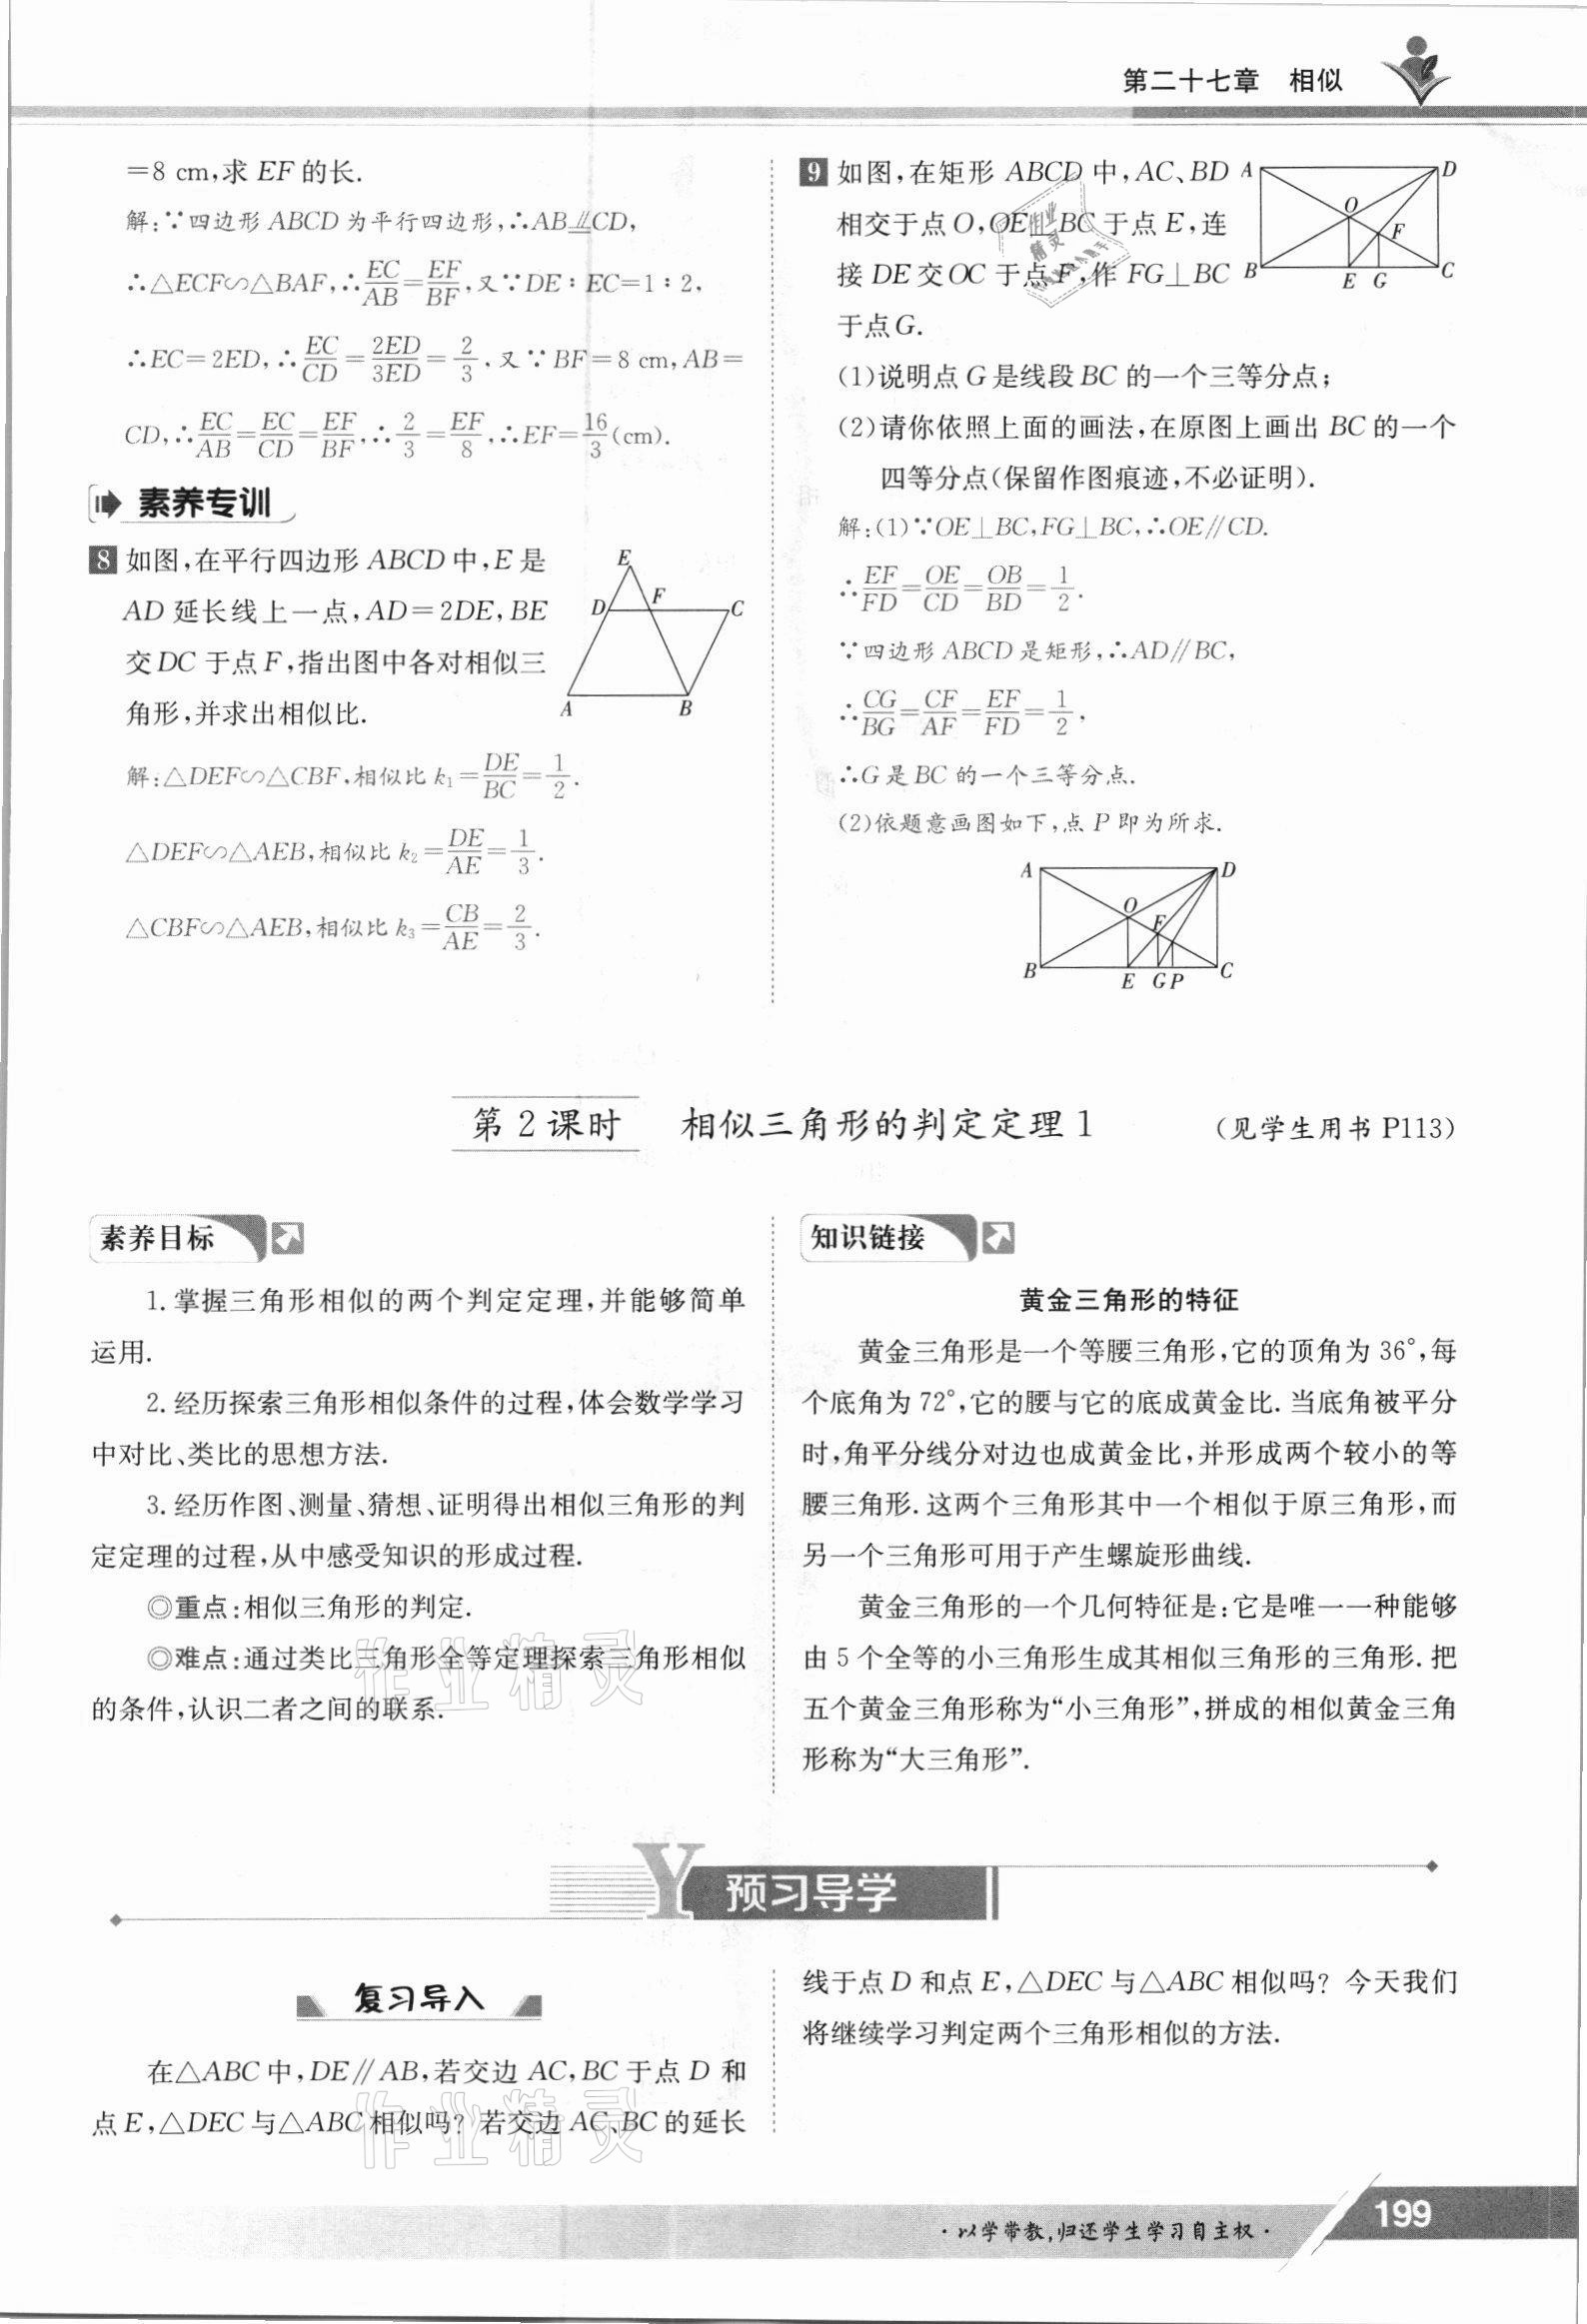 第二十七章　相似
=8 cm,求 EF 的长.
解:∵四边形 ABCD 为平行四边形,∴AB∥CD,
∴△ECF∽△BAF,∴EC/AB=EF/BF,又∵DE∶EC=1∶2,
∴EC=2ED,∴EC/CD=2ED/3ED=2/3.又∵BF=8 cm,AB=
CD,∴EC/AB=EC/CD=EF/BF,∴2/3=EF/8,∴EF=16/3(cm).
素养专训
8 如图,在平行四边形 ABCD 中,E 是
AD 延长线上一点,AD=2DE,BE
交 DC 于点 F,指出图中各对相似三
角形,并求出相似比.
E
D F C
A B
解:△DEF∽△CBF,相似比 k₁=DE/BC=1/2.
△DEF∽△AEB,相似比 k₂=DE/AE=1/3.
△CBF∽△AEB,相似比 k₃=CB/AE=2/3.
9 如图,在矩形 ABCD 中,AC、BD
相交于点 O,OE⊥BC 于点 E,连
接 DE 交 OC 于点 F,作 FG⊥BC
于点 G.
A D
O
F
B E G C
(1)说明点 G 是线段 BC 的一个三等分点;
(2)请你依照上面的画法,在原图上画出 BC 的一个
四等分点(保留作图痕迹,不必证明).
解:(1)∵OE⊥BC,FG⊥BC,∴OE∥CD.
∴EF/FD=OE/CD=OB/BD=1/2.
∵四边形 ABCD 是矩形,∴AD∥BC,
∴CG/BG=CF/AF=EF/FD=1/2,
∴G 是 BC 的一个三等分点.
(2)依题意画图如下,点 P 即为所求.
A D
O
F
B E G P C
第 2 课时　相似三角形的判定定理 1　(见学生用书 P113)
素养目标
1. 掌握三角形相似的两个判定定理,并能够简单
运用.
2. 经历探索三角形相似条件的过程,体会数学学习
中对比、类比的思想方法.
3. 经历作图、测量、猜想、证明得出相似三角形的判
定定理的过程,从中感受知识的形成过程.
◎重点:相似三角形的判定.
◎难点:通过类比三角形全等定理探索三角形相似
的条件,认识二者之间的联系.
知识链接
黄金三角形的特征
黄金三角形是一个等腰三角形,它的顶角为 36°,每
个底角为 72°,它的腰与它的底成黄金比. 当底角被平分
时,角平分线分对边也成黄金比,并形成两个较小的等
腰三角形. 这两个三角形其中一个相似于原三角形,而
另一个三角形可用于产生螺旋形曲线.
黄金三角形的一个几何特征是:它是唯一一种能够
由 5 个全等的小三角形生成其相似三角形的三角形. 把
五个黄金三角形称为“小三角形”,拼成的相似黄金三角
形称为“大三角形”.
Y 预习导学
复习导入
在△ABC 中,DE∥AB,若交边 AC,BC 于点 D 和
点 E,△DEC 与△ABC 相似吗? 若交边 AC、BC 的延长
线于点 D 和点 E,△DEC 与△ABC 相似吗? 今天我们
将继续学习判定两个三角形相似的方法.
作业精灵
作业精灵
作业精灵
·以学带教,归还学生学习自主权·
199